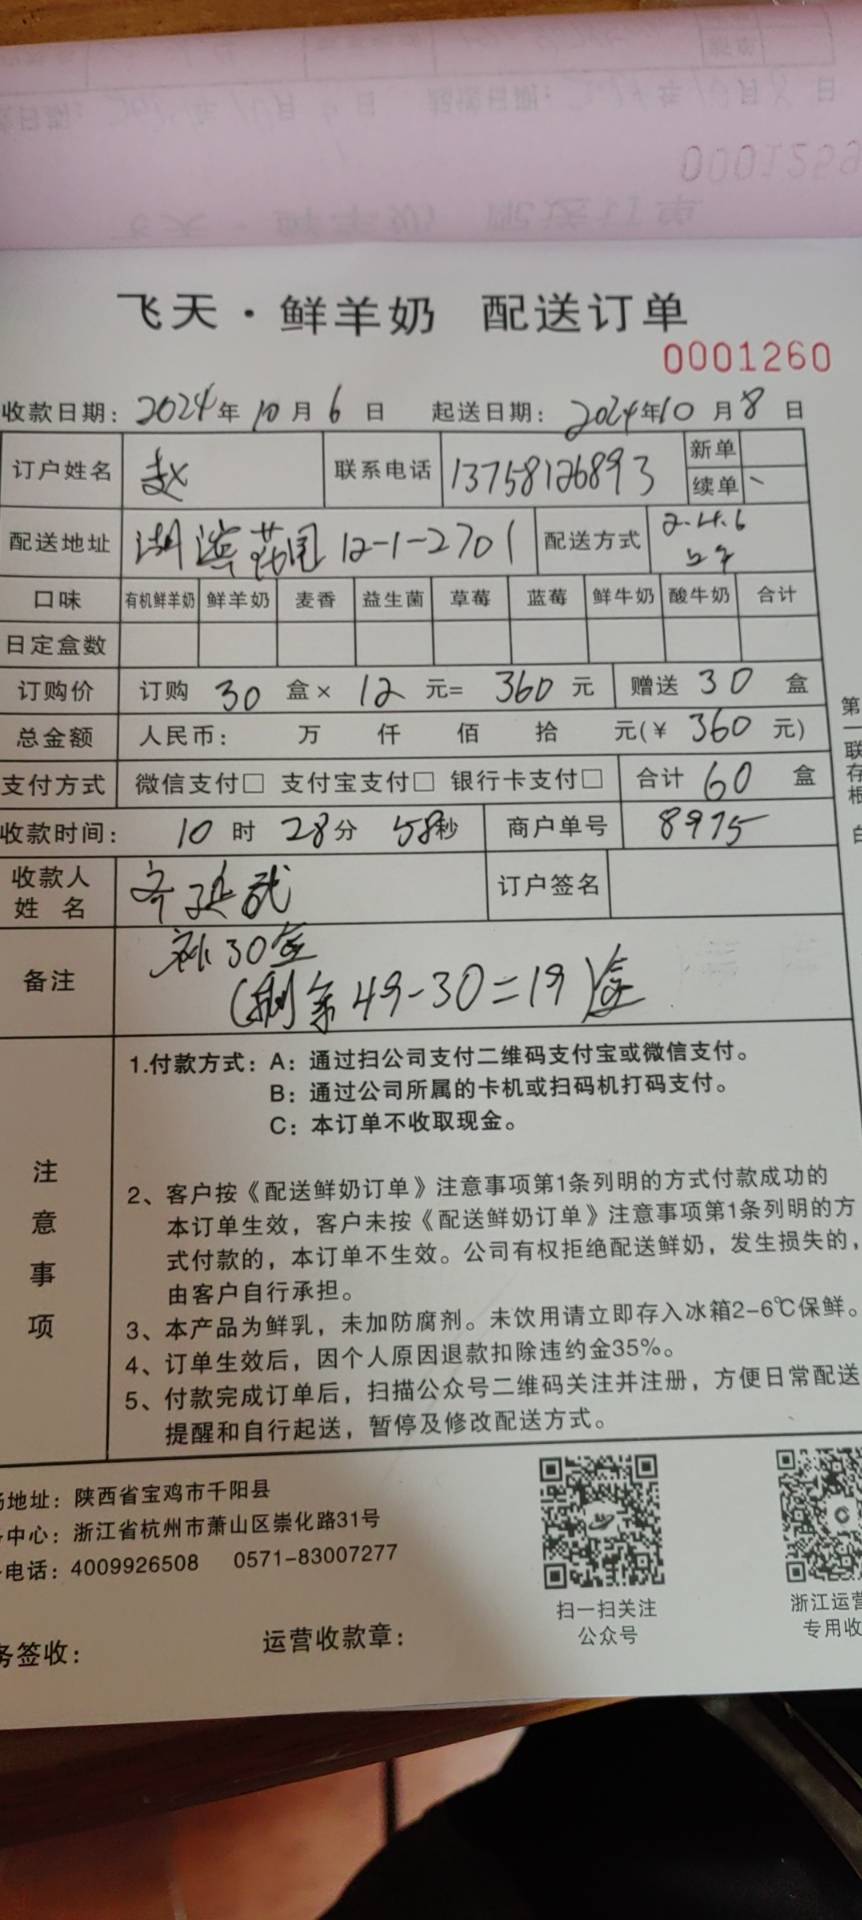 飞天·鲜羊奶 配送订单
0001260
收款日期：2024年10月6日 起送日期：2024年10月8日
订户姓名 赵 联系电话 13758126893 新单
续单
配送地址 湖滨花园 12-1-2701 配送方式 2.4.6
口味 有机鲜羊奶 鲜羊奶 麦香 益生菌 草莓 蓝莓 鲜牛奶 酸牛奶 合计
日定盒数
订购价 订购 30 盒× 12 元= 360 元 赠送 30 盒
总金额 人民币： 万 仟 佰 拾 元(￥ 360 元)
支付方式 微信支付□ 支付宝支付□ 银行卡支付□ 合计 60 盒
收款时间： 10 时 28分 58秒 商户单号 8975
收款人
姓 名 订户签名
备注 补30盒
(剩余49-30=19)盒
注意事项
1.付款方式：A：通过扫公司支付二维码支付宝或微信支付。
B：通过公司所属的卡机或扫码机打码支付。
C：本订单不收取现金。
2、客户按《配送鲜奶订单》注意事项第1条列明的方式付款成功的
本订单生效，客户未按《配送鲜奶订单》注意事项第1条列明的方
式付款的，本订单不生效。公司有权拒绝配送鲜奶，发生损失的，
由客户自行承担。
3、本产品为鲜乳，未加防腐剂。未饮用请立即存入冰箱2-6℃保鲜。
4、订单生效后，因个人原因退款扣除违约金35%。
5、付款完成订单后，扫描公众号二维码关注并注册，方便日常配送
提醒和自行起送，暂停及修改配送方式。
第一联存根
地址：陕西省宝鸡市千阳县
中心：浙江省杭州市萧山区崇化路31号
电话：4009926508 0571-83007277
扫一扫关注
公众号
浙江运营
专用收
务签收：
运营收款章：